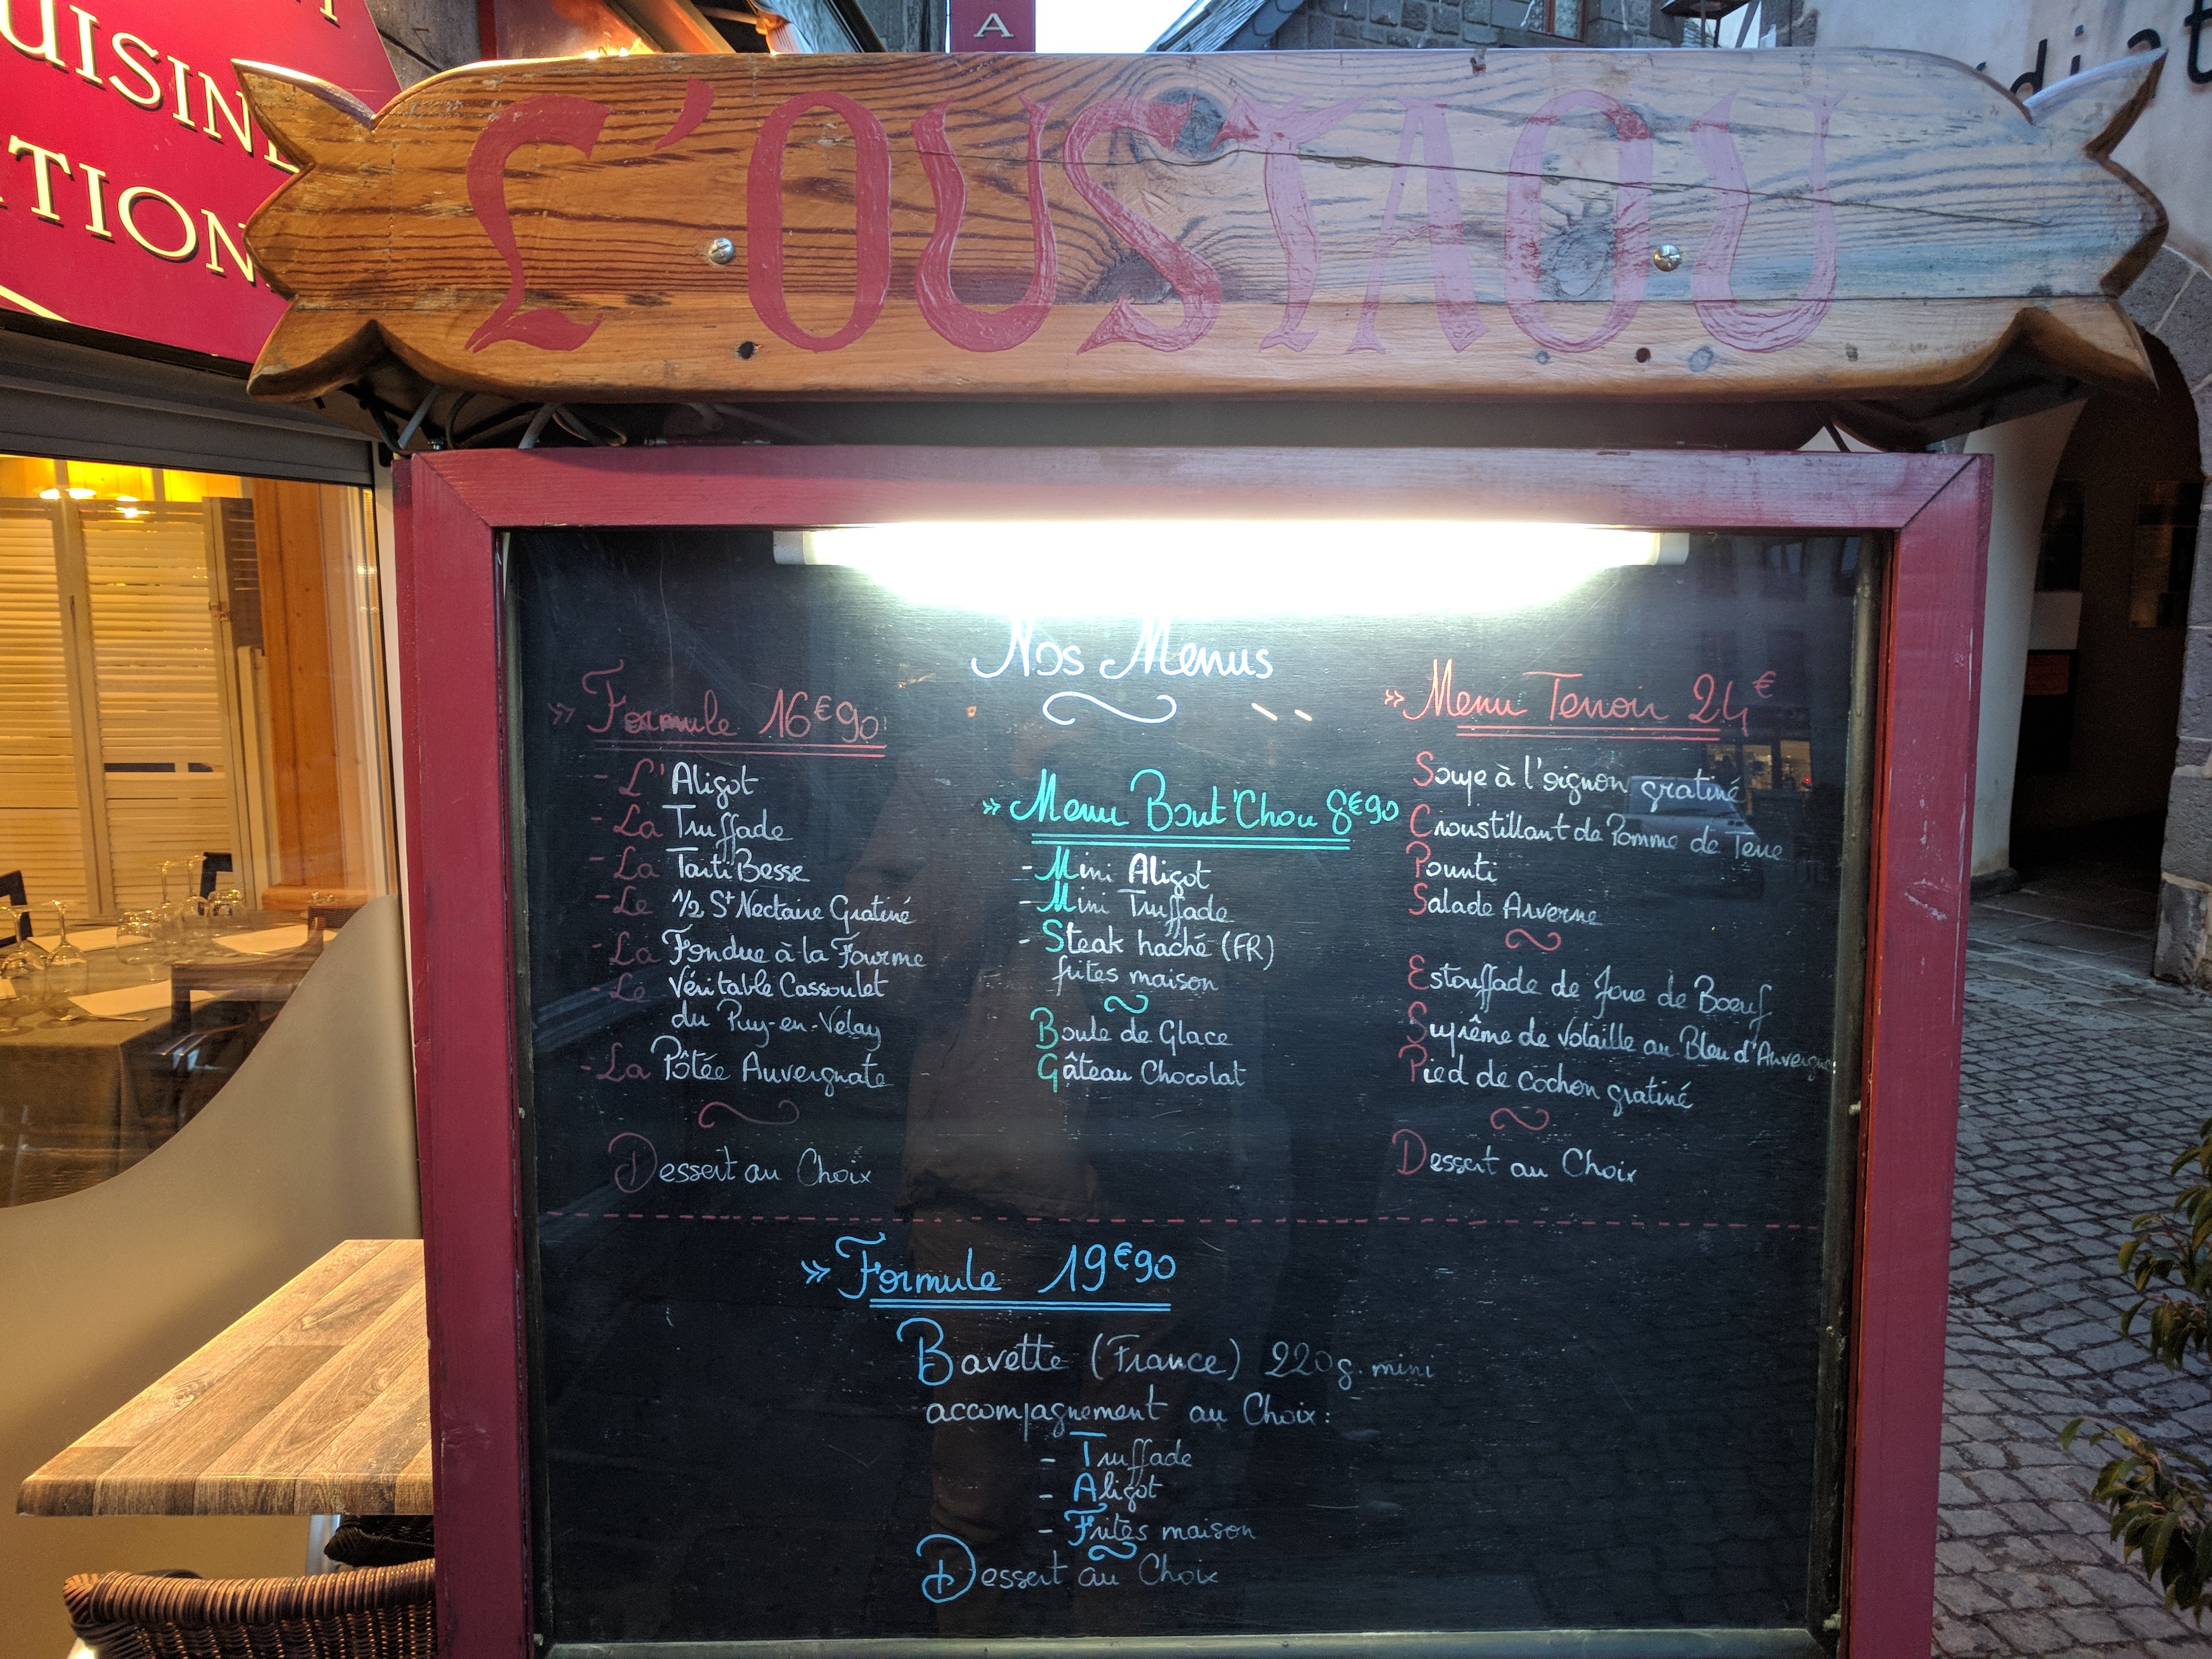 UISINE
TION
A
L'OUSTAOU
Nos Menus
» Formule 16€90
- L'Aligot
- La Truffade
- La Tarti Besse
- Le 1/2 St Nectaire Gratiné
- La Fondue à la Fourme
- Le Véritable Cassoulet
du Puy-en-Velay
- La Pôtée Auvergnate
Dessert au Choix
» Menu Bout'Chou 8€90
- Mini Aligot
- Mini Truffade
- Steak haché (FR)
frites maison
Boule de Glace
Gâteau Chocolat
» Menu Terroir 24€
Soupe à l'oignon gratiné
Croustillant de Pomme de Terre
Pounti
Salade Arverne
Estouffade de Joue de Boeuf
Suprême de volaille au Bleu d'Auvergne
Pied de cochon gratiné
Dessert au Choix
» Formule 19€90
Bavette (France) 220g. mini
accompagnement au Choix :
- Truffade
- Aligot
- Frites maison
Dessert au Choix